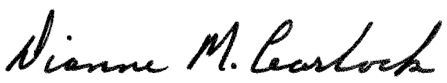 Dianne M. Carlock